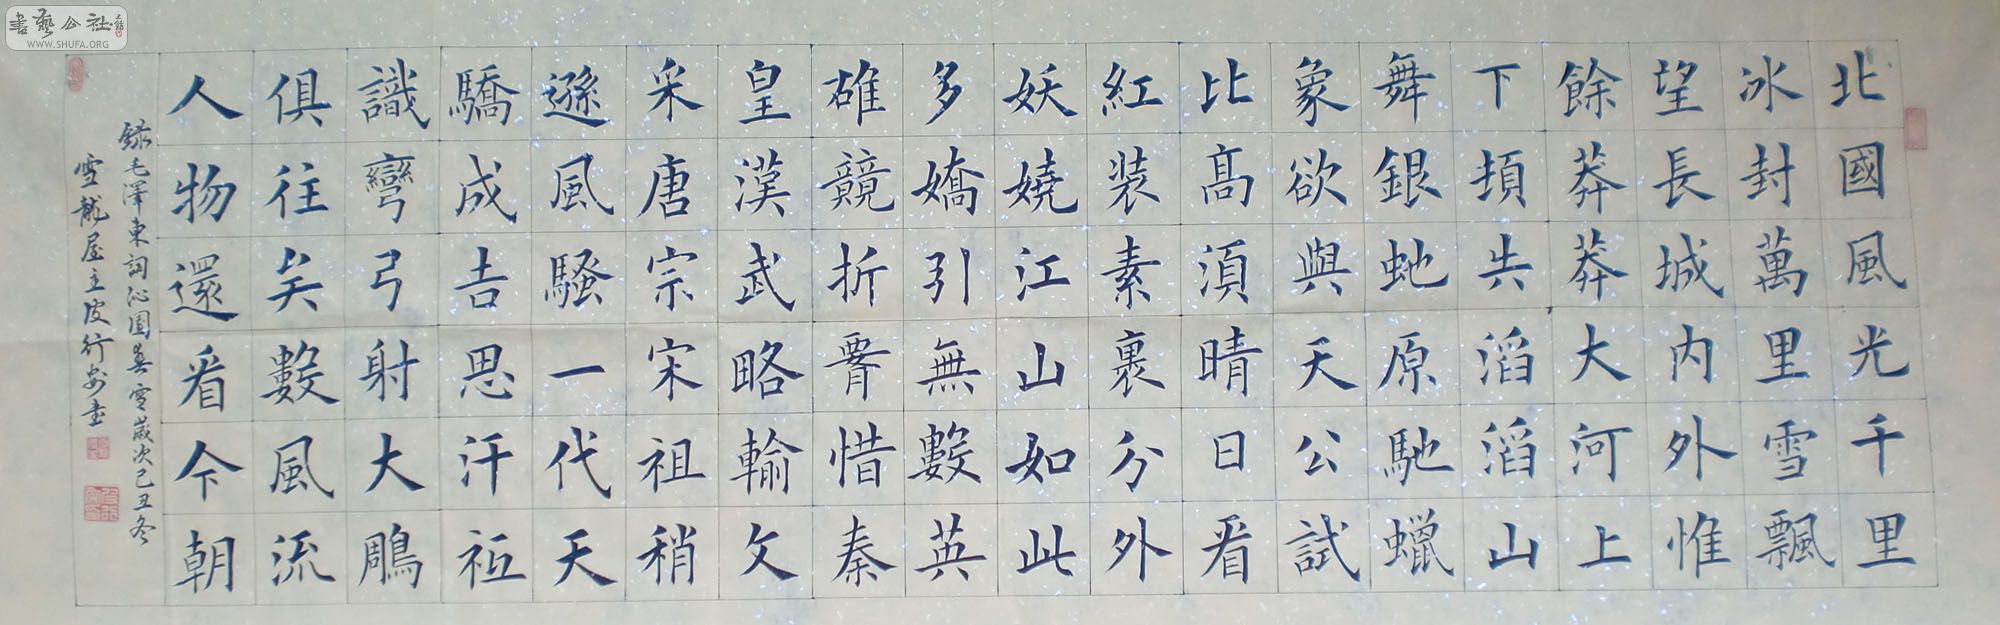 書藝公社
WWW.SHUFA.ORG
北國風光千里
冰封萬里雪飄
望長城內外惟
餘莽莽大河上
下頓失滔滔山
舞銀虵原馳蠟
象欲與天公試
比髙湏晴日看
紅裝素裹分外
妖嬈江山如此
多嬌引無數英
雄競折腰惜秦
皇漢武略輸文
采唐宗宋祖稍
遜風騷一代天
驕成吉思汗祗
識彎弓射大鵰
俱往矣數風流
人物還看今朝
錄毛澤東詞沁園春雪歲次己丑冬
雪龍屋主行書